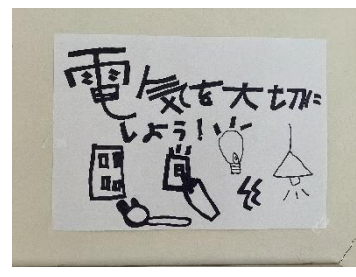 電気を大切に
しよう!